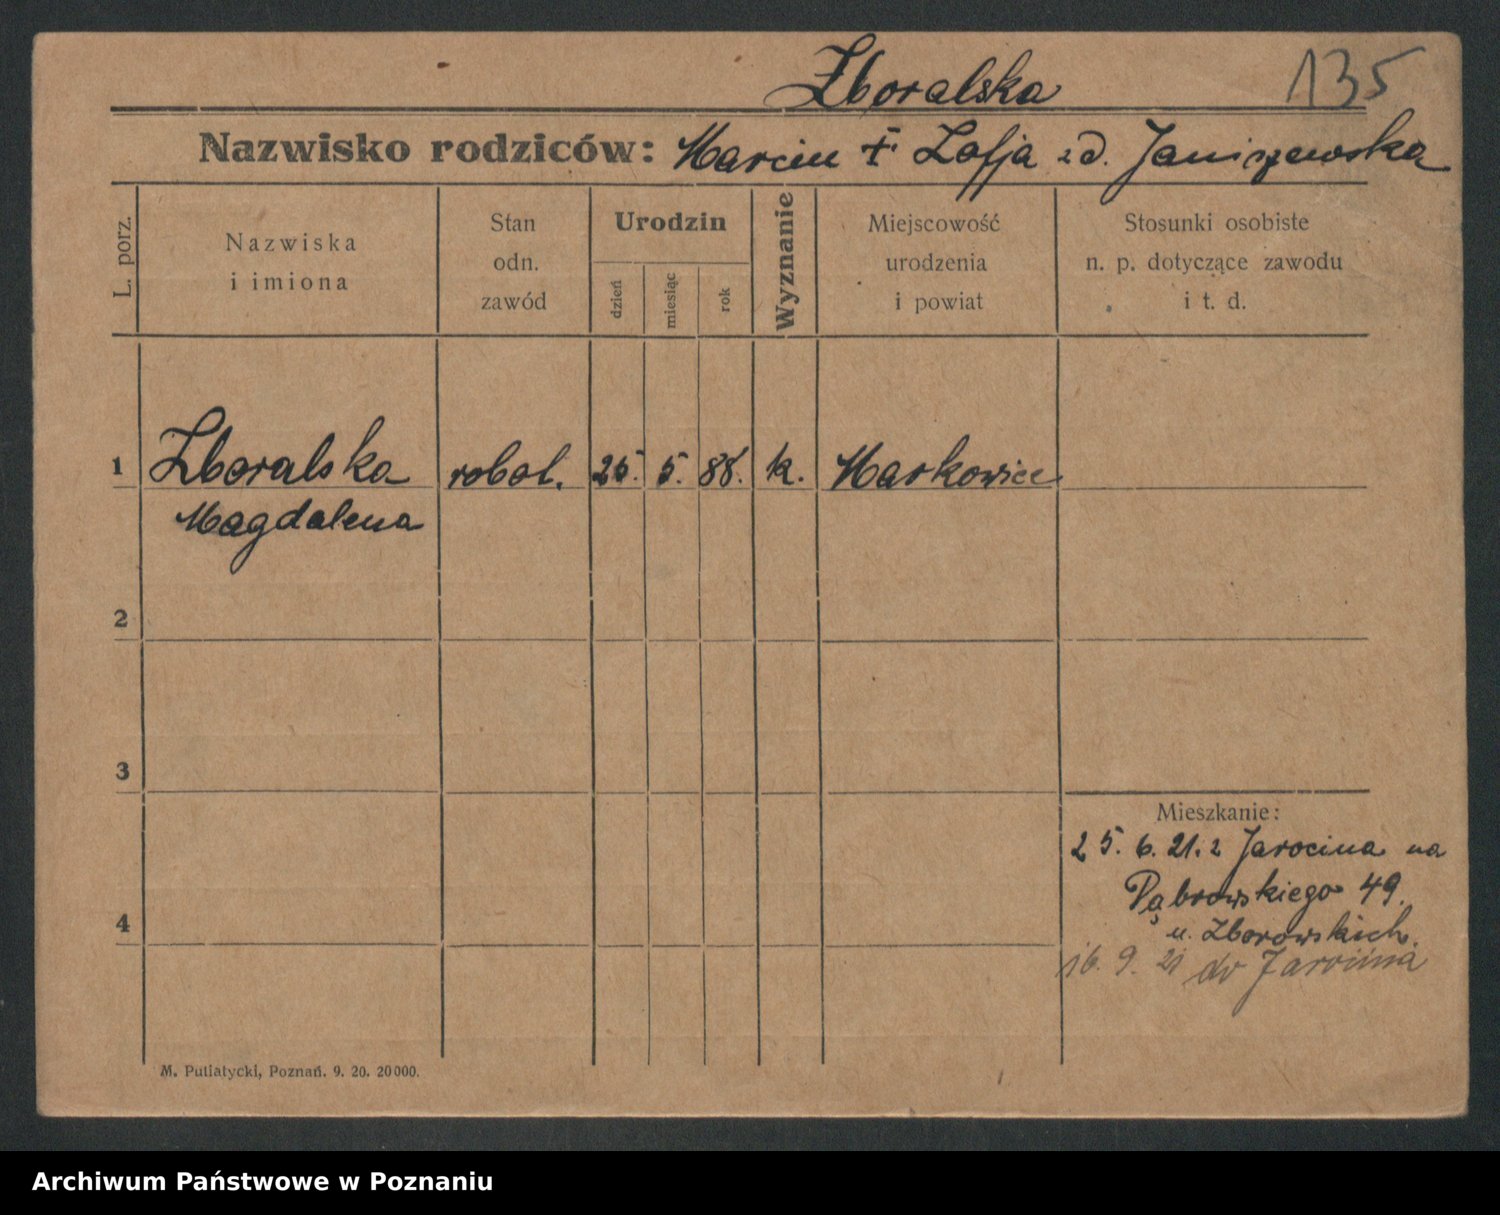 Zboralska 135
Nazwisko rodziców: Marcin † Zofja zd. Janiszewska
L. porz.
Nazwiska
i imiona
Stan
odn.
zawód
Urodzin
dzień
miesiąc
rok
Wyznanie
Miejscowość
urodzenia
i powiat
Stosunki osobiste
n. p. dotyczące zawodu
i t. d.
1 Zboralska robot. 25. 5. 88. k. Markowice
Magdalena
2
3
4
Mieszkanie:
25. 6. 21. z Jarocina na
Dąbrowskiego 49.
u. Zborowskich.
16. 9. 21 do Jarocina
M. Putiatycki, Poznań. 9. 20. 20000.
Archiwum Państwowe w Poznaniu